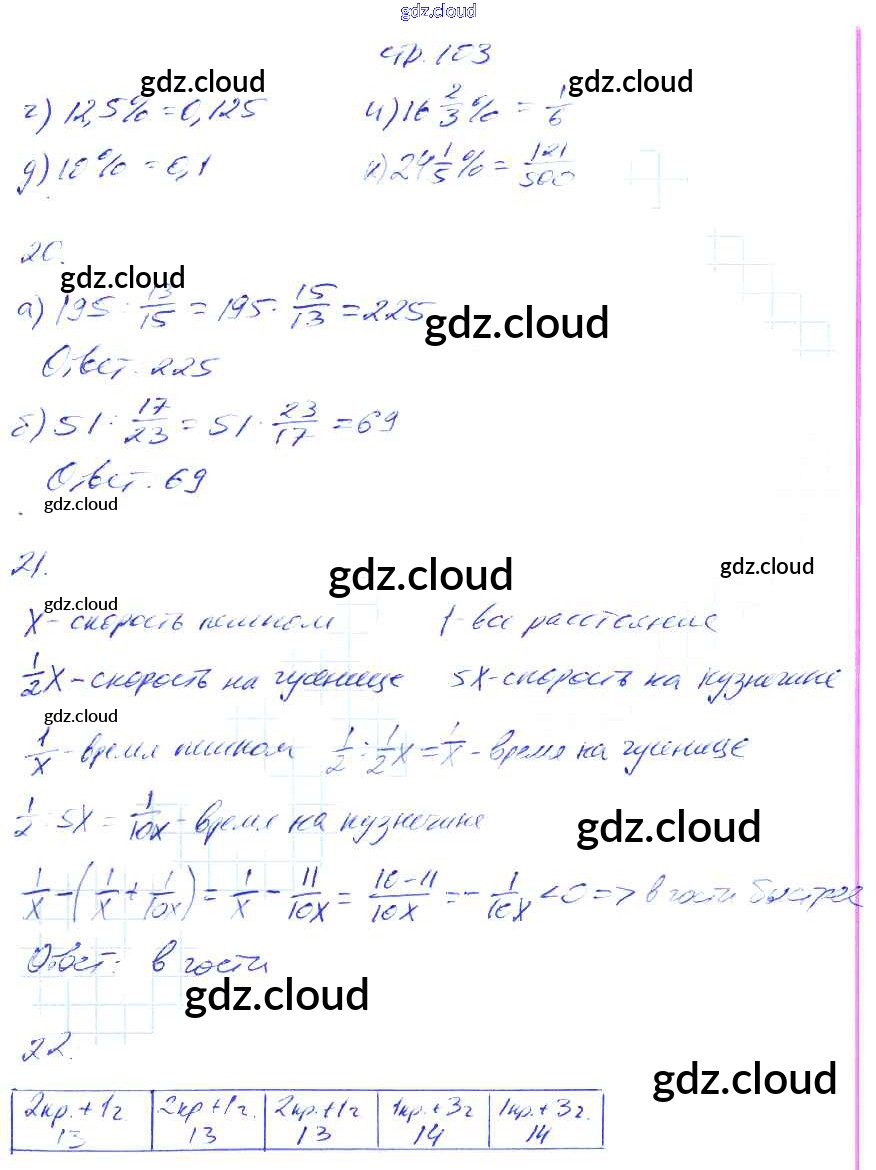 gdz.cloud
стр. 103
gdz.cloud gdz.cloud
г) 12,5% = 0,125 и) 16 2/3 % = 1/6
д) 10% = 0,1 к) 24 1/5 % = 121/500
20.
gdz.cloud
а) 195 : 13/15 = 195 · 15/13 = 225
gdz.cloud
Ответ. 225
б) 51 : 17/23 = 51 · 23/17 = 69
Ответ. 69
gdz.cloud
21.
gdz.cloud gdz.cloud
gdz.cloud
x - скорость пешком 1 - все расстояние
1/2 x - скорость на гусенице 5x - скорость на кузнечике
gdz.cloud
1/x - время пешком 1/2 : 1/2 x = 1/x - время на гусенице
1/2 : 5x = 1/10x - время на кузнечике
gdz.cloud
1/x - (1/x + 1/10x) = 1/x - 11/10x = 10-11/10x = - 1/10x < 0 => в гости быстрее
Ответ: в гости
gdz.cloud
22.
gdz.cloud
2кр. + 1г 2кр + 1г. 2кр. + 1г 1кр. + 3г 1кр. + 3г.
13 13 13 14 14